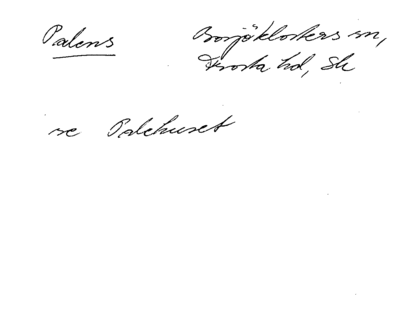 Palens Bosjöklosters sn,
Frosta hd, Sk
se Palehuset